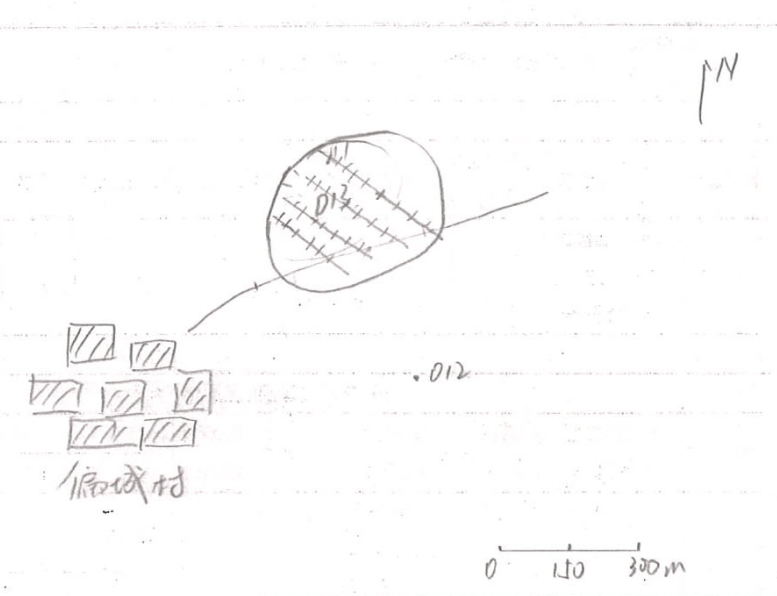 N
D13
D12
偏城村
0 150 300m